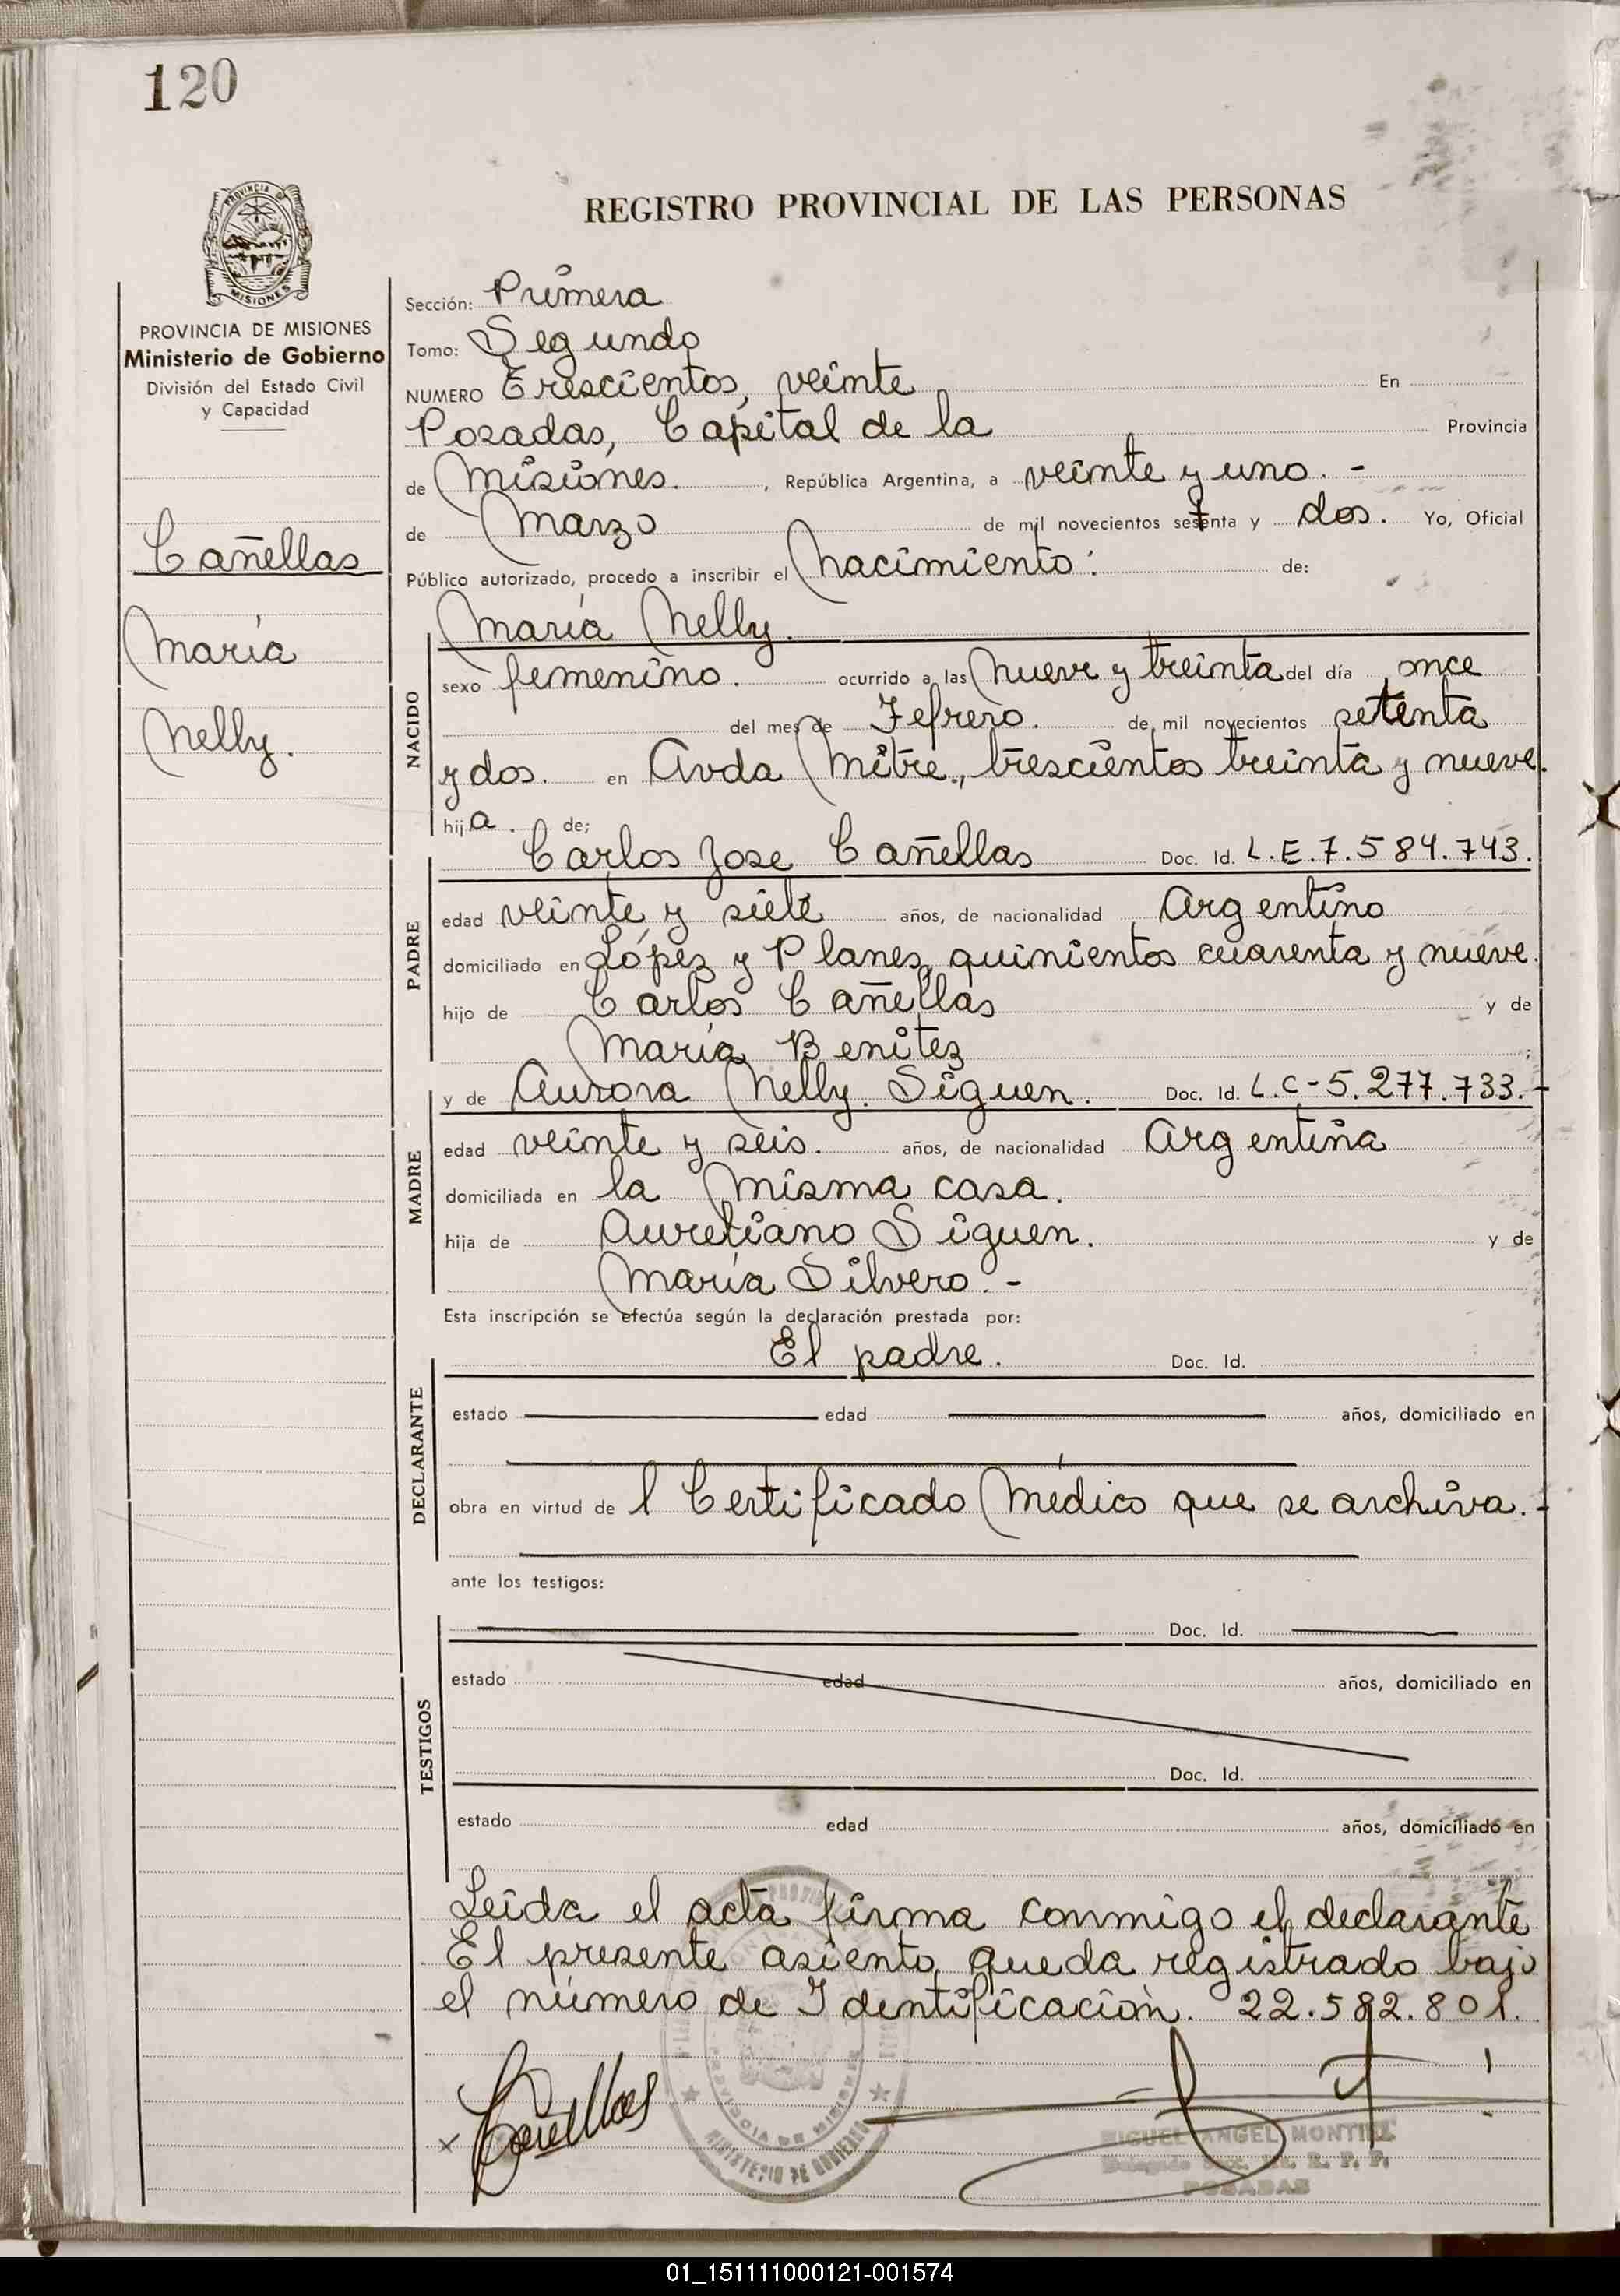 120
PROVINCIA DE
MISIONES
REGISTRO PROVINCIAL DE LAS PERSONAS
PROVINCIA DE MISIONES
Ministerio de Gobierno
División del Estado Civil
y Capacidad
Cañellas
María
Nelly.
Sección: Primera
Tomo: Segundo
NUMERO Trescientos, veinte En
Posadas, Capital de la Provincia
de Misiones. , República Argentina, a veinte y uno. -
de Marzo de mil novecientos setenta y dos. Yo, Oficial
Público autorizado, procedo a inscribir el Nacimiento: de:
María Nelly.
NACIDO
sexo femenino. ocurrido a las Nueve y treinta del día once
del mes de Febrero. de mil novecientos setenta
y dos. en Avda Mitre., trescientos treinta y nueve.
hija. de;
Carlos Jose Cañellas Doc. Id. L.E.7.584.743.
PADRE
edad veinte y siete años, de nacionalidad Argentino
domiciliado en López y Planes, quinientos cuarenta y nueve.
hijo de Carlos Cañellas y de
María Benitez ;
y de Aurora Nelly. Siguen. Doc. Id. L.C-5.277.733.-
MADRE
edad veinte y seis. años, de nacionalidad Argentina
domiciliada en la Misma casa.
hija de Aureliano Siguen. y de
María Silvero. -
Esta inscripción se efectúa según la declaración prestada por:
El padre. Doc. Id.
DECLARANTE
estado edad años, domiciliado en
obra en virtud de l Certificado Médico que se archiva.-
ante los testigos:
Doc. Id.
TESTIGOS
estado edad años, domiciliado en
Doc. Id.
estado edad años, domiciliado en
Leida el acta firma conmigo el declarante
El presente asiento queda registrado bajo
el número de Identificación. 22.582.801.
x Cañellas
PROVINCIA DE MISIONES
MINISTERIO DE GOBIERNO
MIGUEL ANGEL MONTIEL
POSADAS
01_151111000121-001574